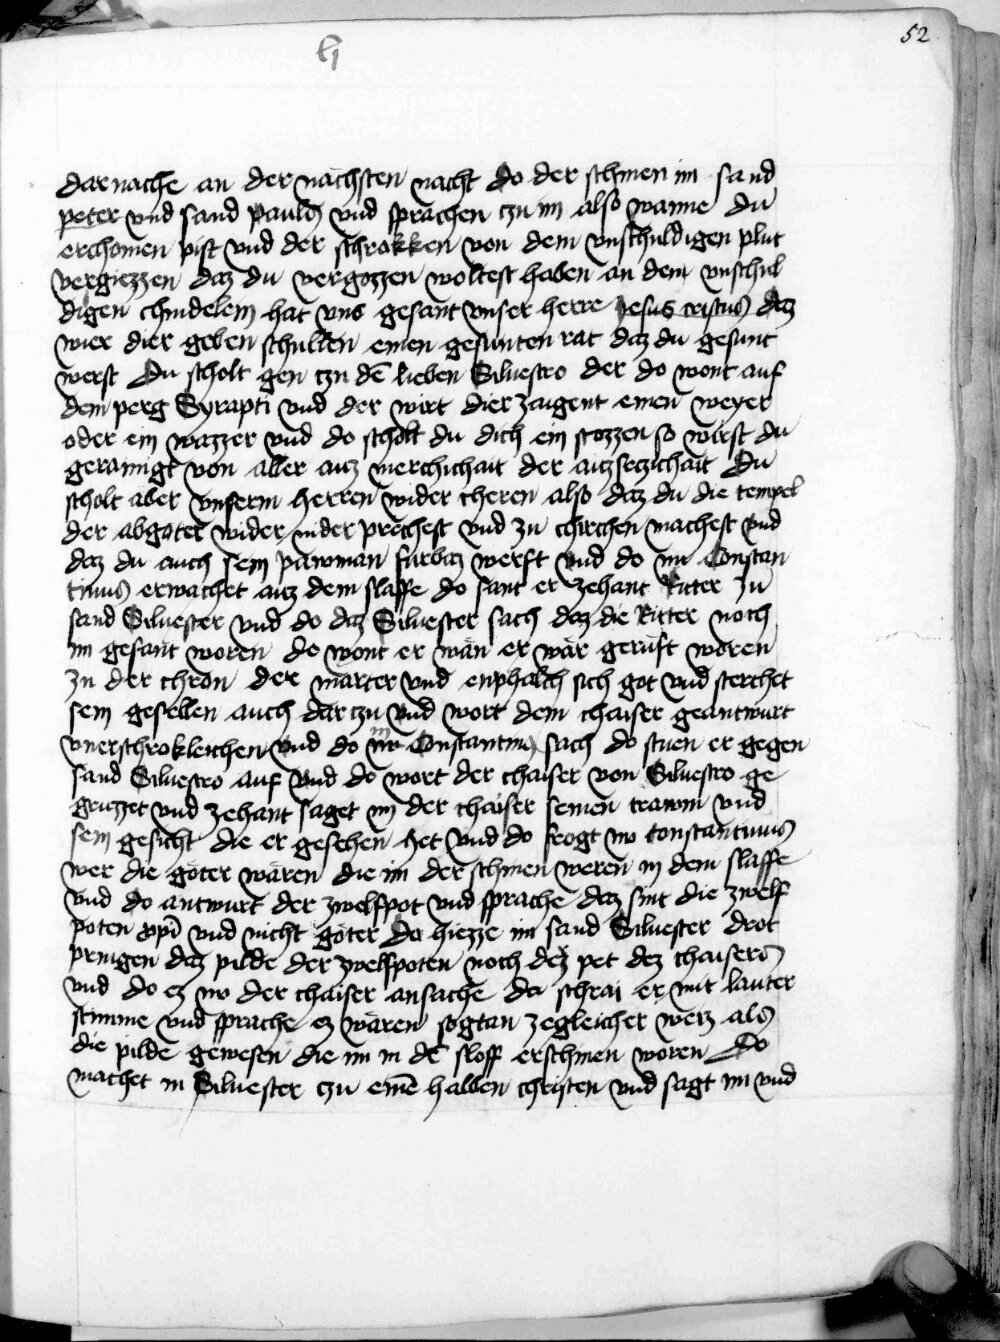 52
dar nache an der nachsten nacht do der schinen im sand
peter vnd sand pauls vnd sprachen czu im also wanne du
erchomen pist vnd der schrokken von dem vnschuldigen plut
vergiezzen daz du vergozzen woltest haben an dem vnschul
digen chindelein hat vns gesant vnser herre Jesus cristus daz
wier dier geben schullen einen gesunten rat daz du gesunt
werst Du scholt gen czu dē lieben Siluestro der do wont auf
dem perg Syrapti vnd der wirt dier zaigent einen weyer
oder ein wazzer vnd do scholt du dich ein stozzen so wirst du
gerainigt von aller auz merchichait der auzseczichait Du
scholt aber vnserm herren wider cheren also daz du die tempel
der abgoter wider nider prechest vnd zu chirchen machest vnd
daz du auch sein pawman furbaz werst vnd do nu Constan
tinus erwachet auz dem slaffe do sant er zehant Ritter zu
sand Siluester vnd do daz Siluester sach daz die Ritter noch
im gesant woren do wont er wän er wär geruft woren
zu der chron der marter vnd enphalch sich got vnd sterchet
sein gesellen auch dar czu vnd wort dem chaiser geantwurt
vnerschrokleichen vnd do nu Constantinus sach do stuen er gegen
sand Siluestro auf vnd do wort der chaiser von Siluestro ge
gruzzet vnd zehant saget im der chaiser seinen trawm vnd
sein gesicht die er gesehen het vnd do frogt nu constantinus
wer die göter wären die im der schinen weren in dem slaffe
vnd do antwurt der zwelfpot vnd sprache daz sint die zwelf
poten xpī vnd nicht göter do hiezze im sand Siluester drot
pringen daz pilde der zwelfpoten noch dez pet dez chaisers
vnd do ez nu der chaiser ansache do schrai er mit lauter
stimme vnd sprache ez wären sogtan zegleicher weiz als
die pilde gewesen die im in dē sloff erschinen woren Do
machet in Siluester czu einē halben christen vnd sagt im vnd